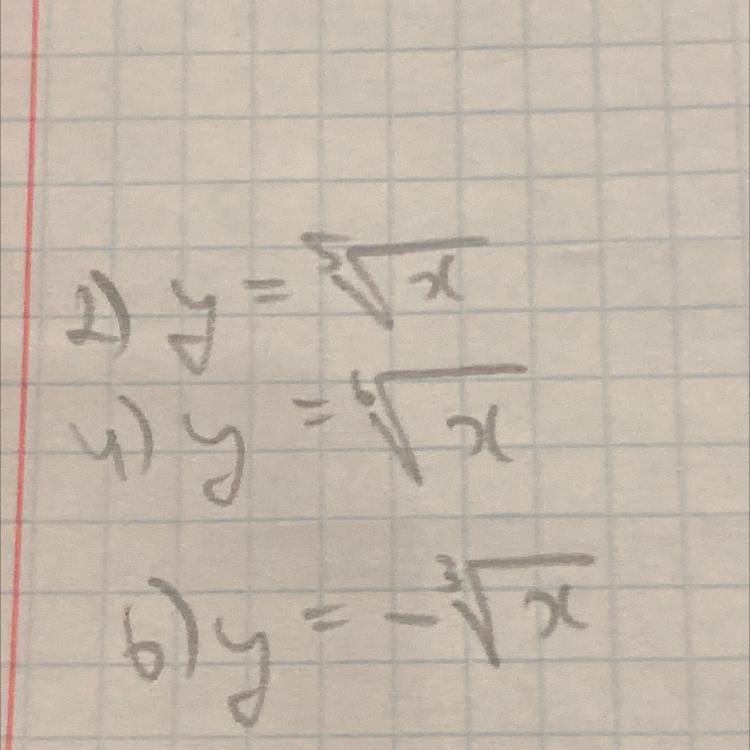 2) y = ⁵√x
4) y = ⁶√x
6) y = -³√x